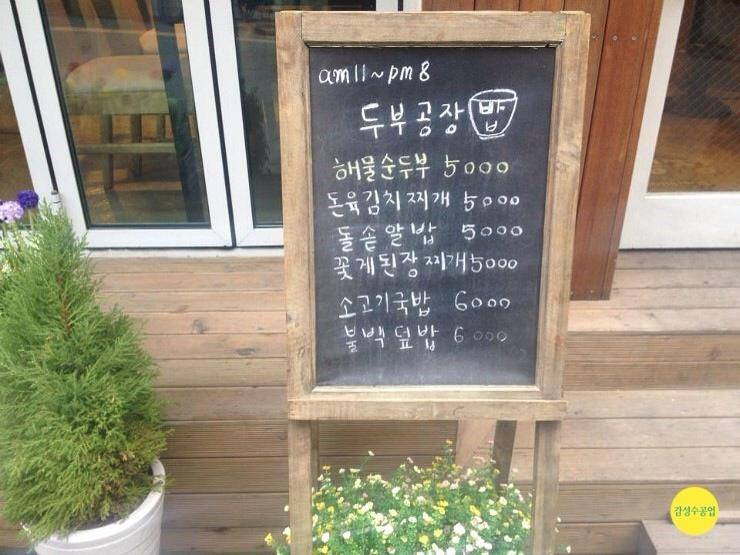 am11~pm8
두부공장 밥
해물순두부 5000
돈육김치찌개 5000
돌솥알밥 5000
꽃게된장찌개 5000
소고기국밥 6000
불백덮밥 6000
감성수공업